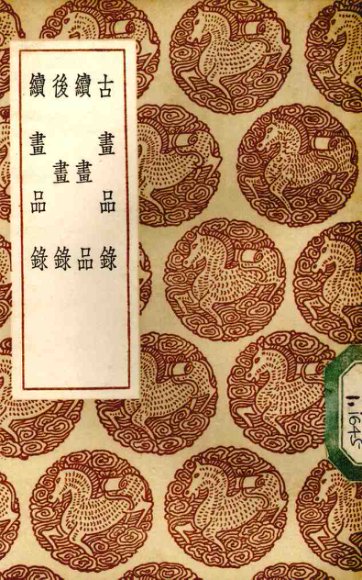 古畫品錄
續畫品
後畫錄
續畫品錄
1.1645